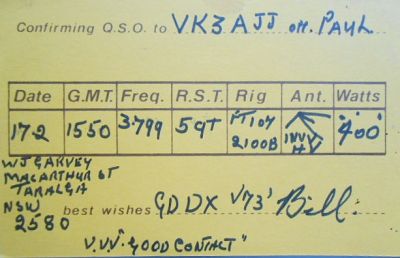 Confirming Q.S.O. to VK3AJJ OM. PAUL
Date G.M.T. Freq. R.S.T. Rig Ant. Watts
172 1550 3.799 59+ FT107 2100B INV V "400"
WJ GARVEY
MACARTHUR ST
TARALGA
NSW
2580
best wishes GD DX '73' Bill.
V.V.V "GOOD CONTACT"